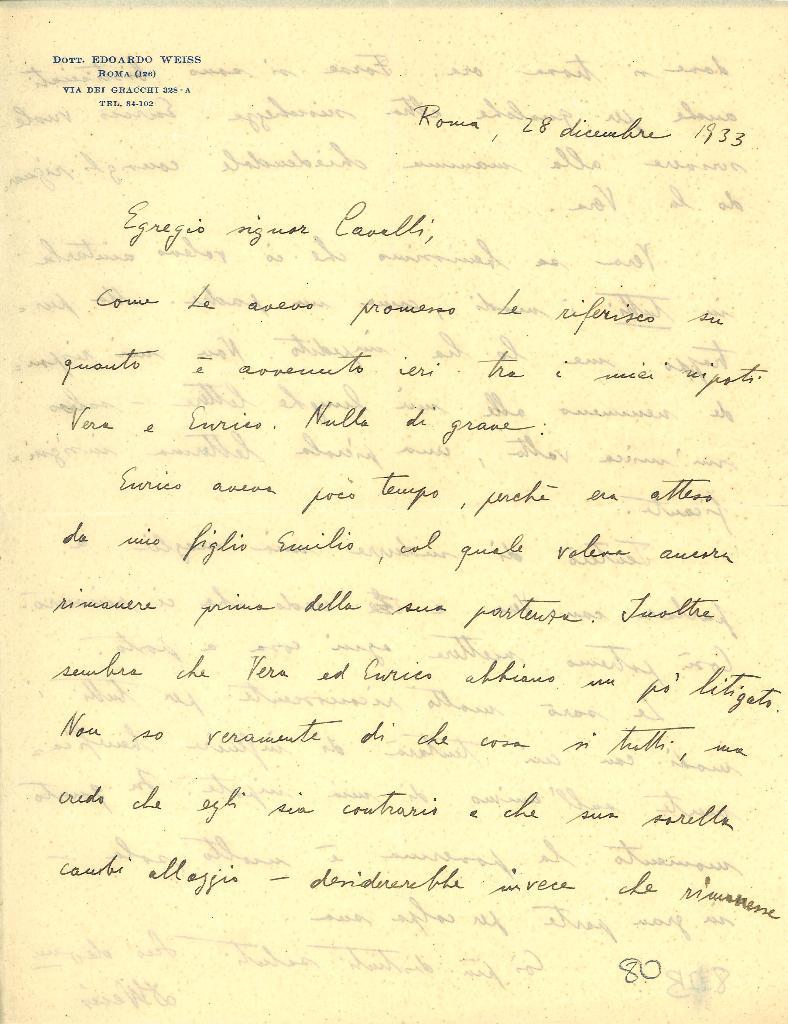 Dott. EDOARDO WEISS
ROMA (126)
VIA DEI GRACCHI 328-A
TEL. 34-102
Roma, 28 dicembre 1933
Egregio signor Cavalli,
Come Le avevo promesso Le riferisco su
quanto è avvenuto ieri tra i miei nipoti
Vera e Enrico. Nulla di grave.
Enrico aveva poco tempo, perchè era atteso
da mio figlio Emilio, col quale voleva ancora
rimanere prima della sua partenza. Inoltre
sembra che Vera ed Enrico abbiano un pò litigato.
Non so veramente di che cosa si tratti, ma
credo che egli sia contrario a che sua sorella
cambi alloggio – desidererebbe invece che rimanesse
80